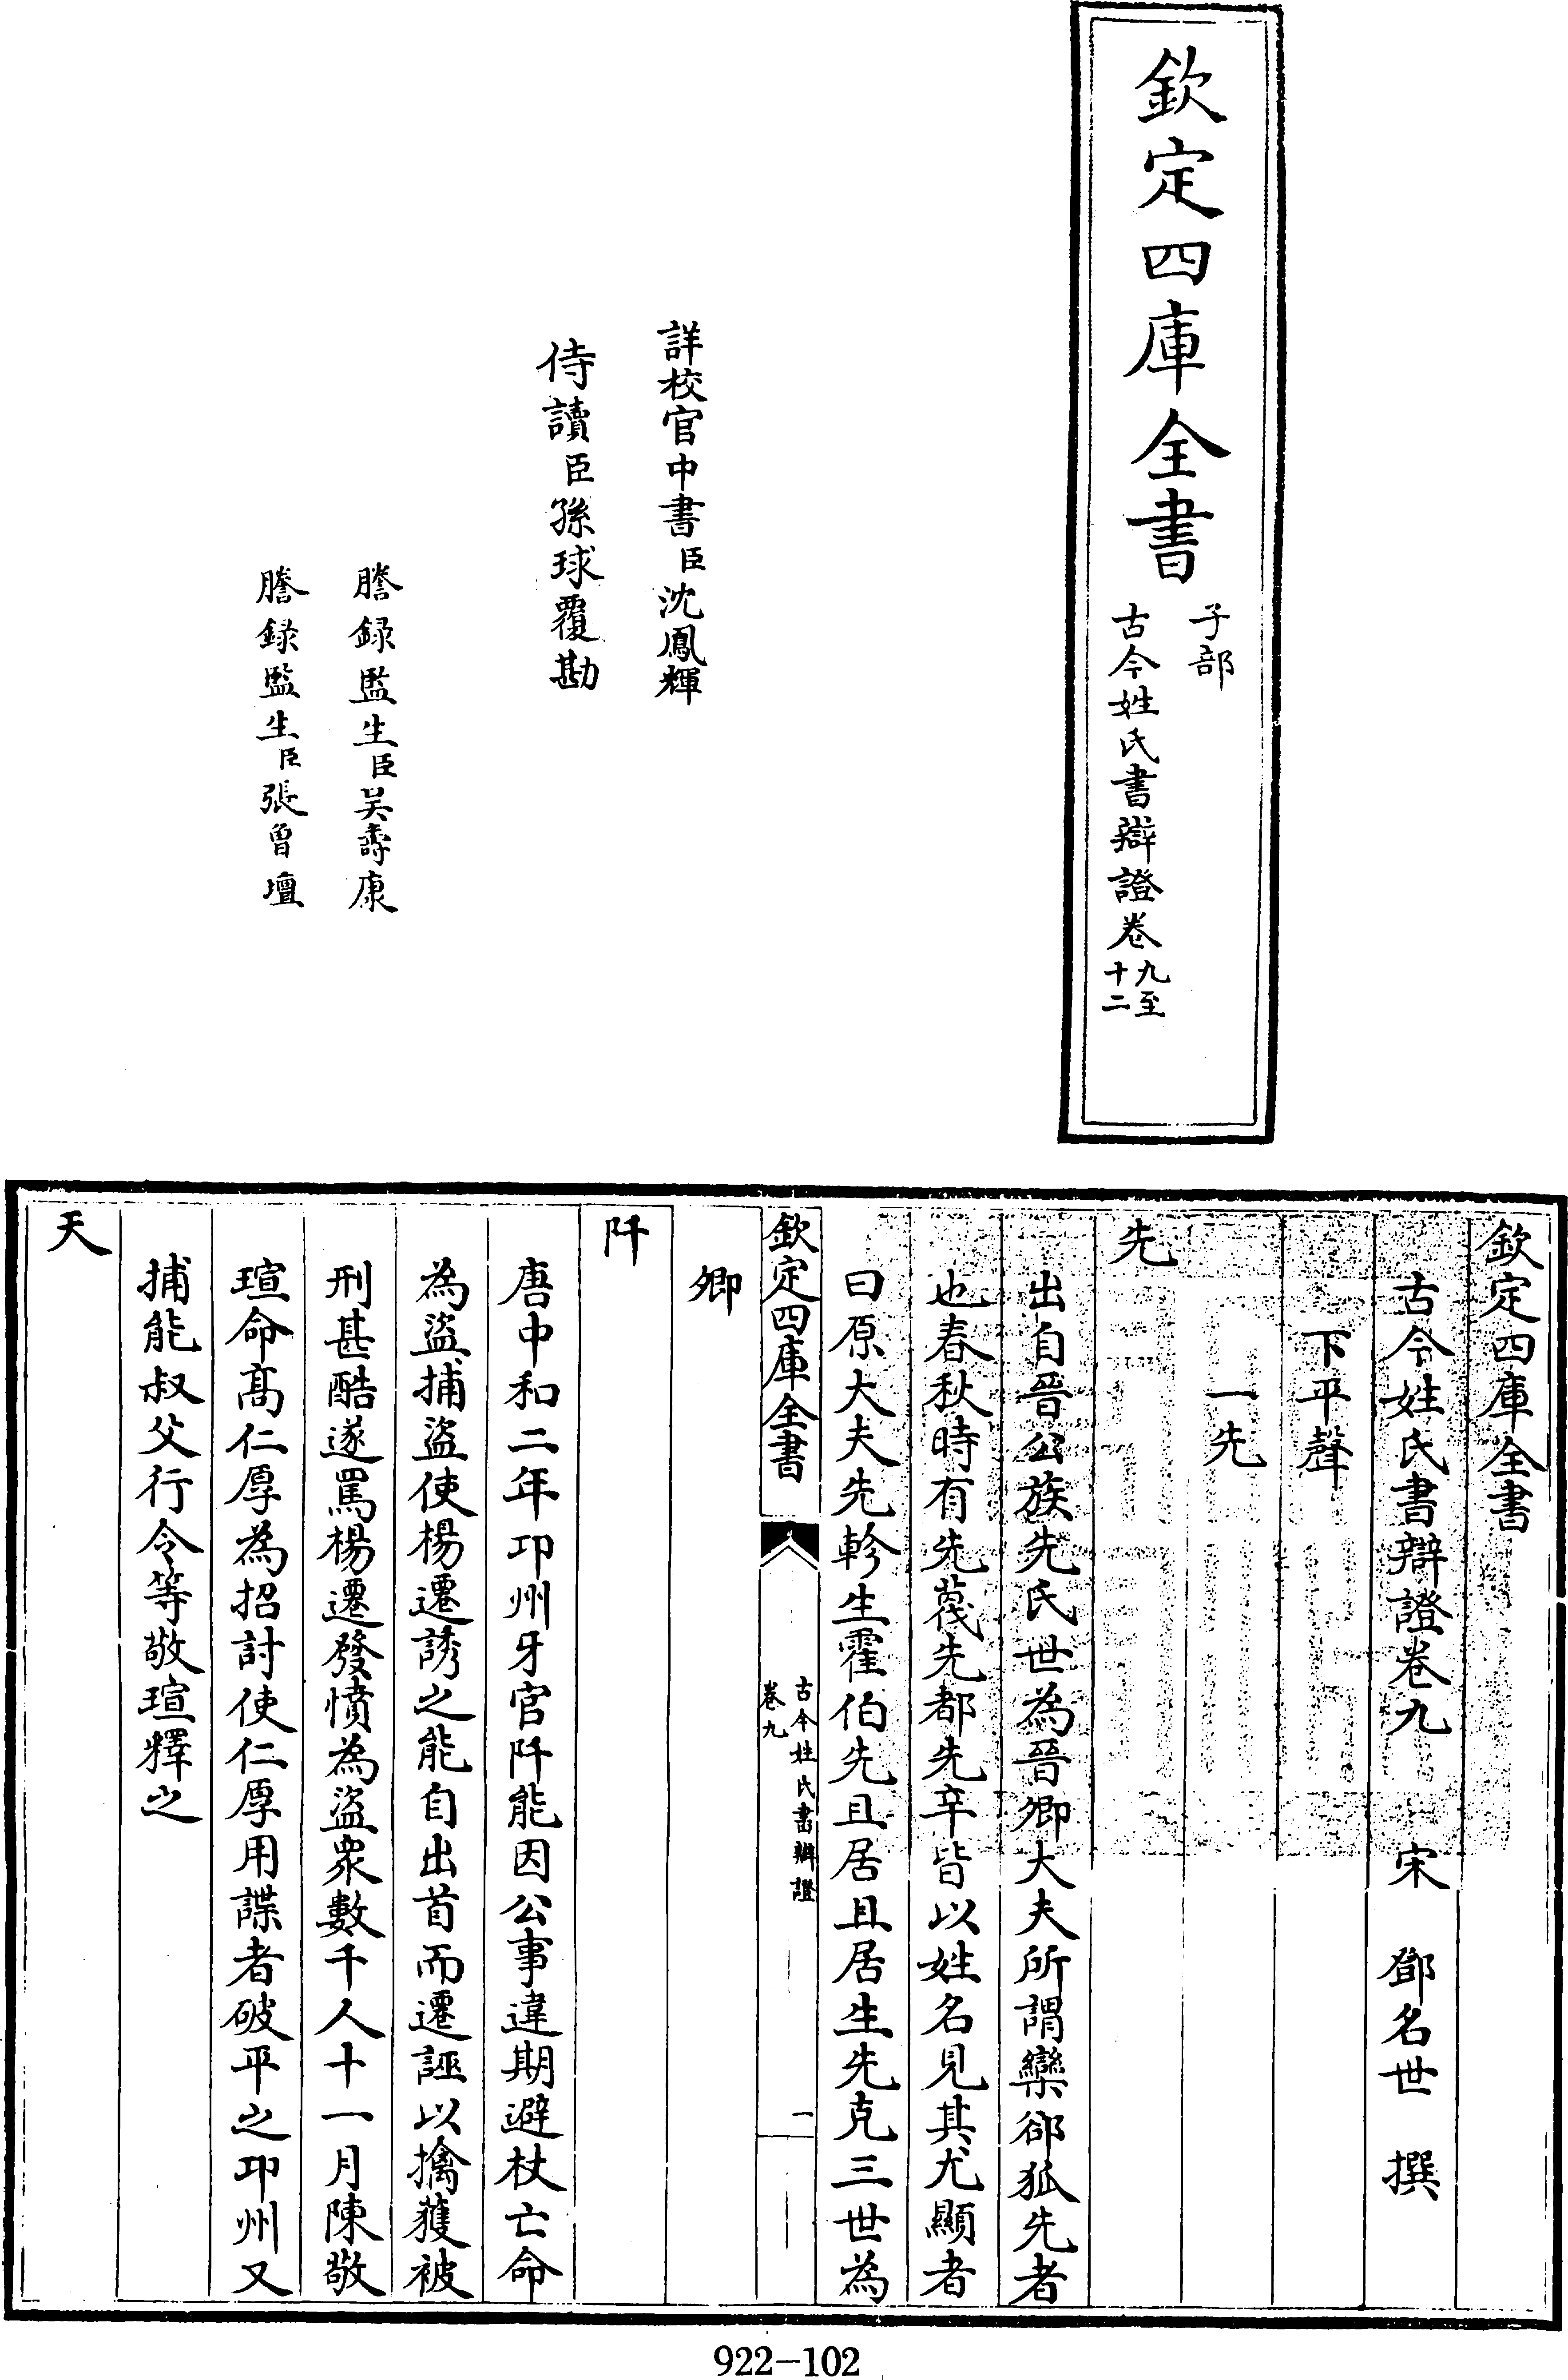 欽定四庫全書
子部
古今姓氏書辯證卷九至十二
詳校官中書臣沈鳳輝
侍讀臣孫球覆勘
謄録監生臣吴壽康
謄録監生臣張曾壇
欽定四庫全書
古今姓氏書辯證卷九 宋 鄧名世 撰
下平聲
一先
先
出自晉公族先氏世為晉卿大夫所謂欒郤狐先者
也春秋時有先蔑先都先辛皆以姓名見其尤顯者
曰原大夫先軫生霍伯先且居且居生先克三世為
欽定四庫全書
古今姓氏書辯證
卷九
一
卿
阡
唐中和二年邛州牙官阡能因公事違期避杖亡命
為盜捕盜使楊遷誘之能自出首而遷誣以擒獲被
刑甚酷遂罵楊遷發憤為盜衆數千人十一月陳敬
瑄命高仁厚為招討使仁厚用諜者破平之邛州又
捕能叔父行令等敬瑄釋之
天
922-102